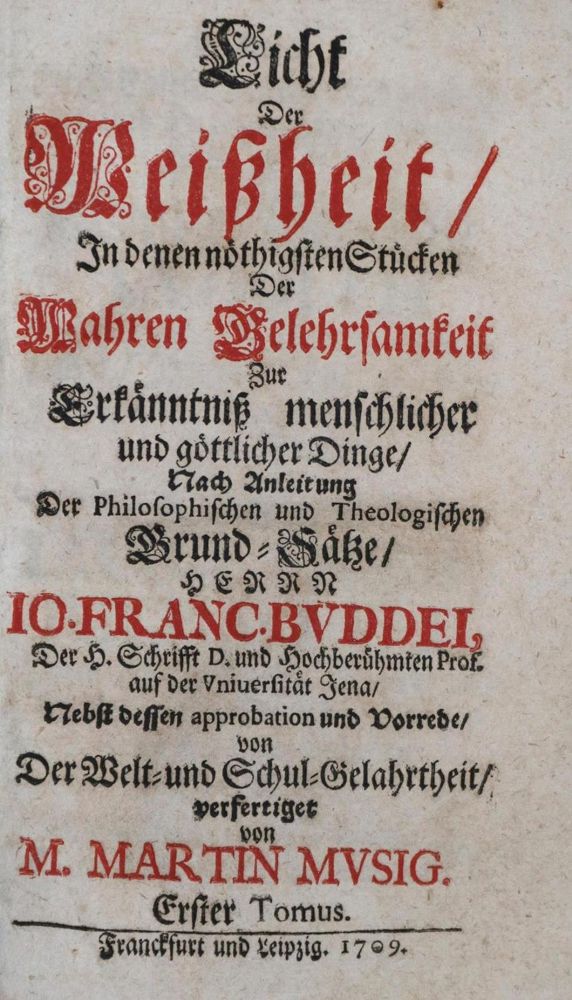 Licht
Der
Weißheit/
In denen nöthigsten Stücken
Der
Wahren Gelehrsamkeit
Zur
Erkänntniß menschlicher
und göttlicher Dinge/
Nach Anleitung
Der Philosophischen und Theologischen
Grund-Sätze/
HERRN
IO. FRANC. BVDDEI,
Der H. Schrifft D. und Hochberühmten Prof.
auf der Vniuersität Jena/
Nebst dessen approbation und Vorrede/
von
Der Welt- und Schul-Gelahrtheit/
verfertiget
von
M. MARTIN MVSIG.
Erster Tomus.
Franckfurt und Leipzig. 1709.